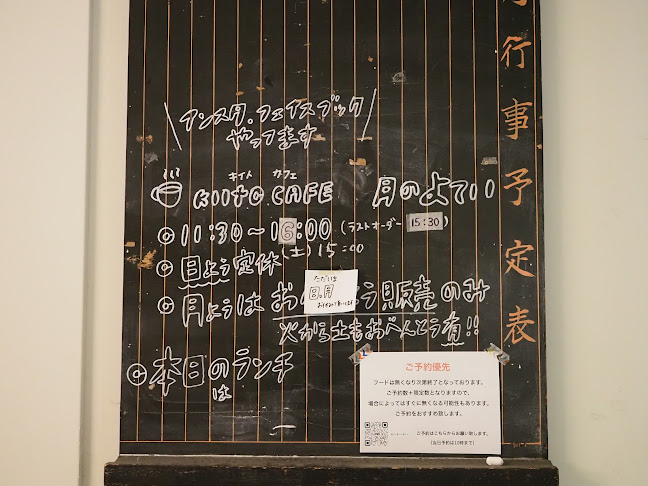 行事予定表
インスタ.フェイスブック
やってます
キイト カフェ
KIITO CAFE 月のよてい
◎11:30〜16:00(ラストオーダー 15:30)
(土)15:00
◎日よう定休
ただいま
日.月
◎月ようは お う販売のみ
火から土もおべんとう有!!
◎本日のランチ
は
ご予約優先
フードは無くなり次第終了となっております。
ご予約数+限定数となりますので、
場合によってはすぐに無くなる可能性もあります。
ご予約をおすすめ致します。
ご予約はこちらからお願い致します。
(当日予約は10時まで)